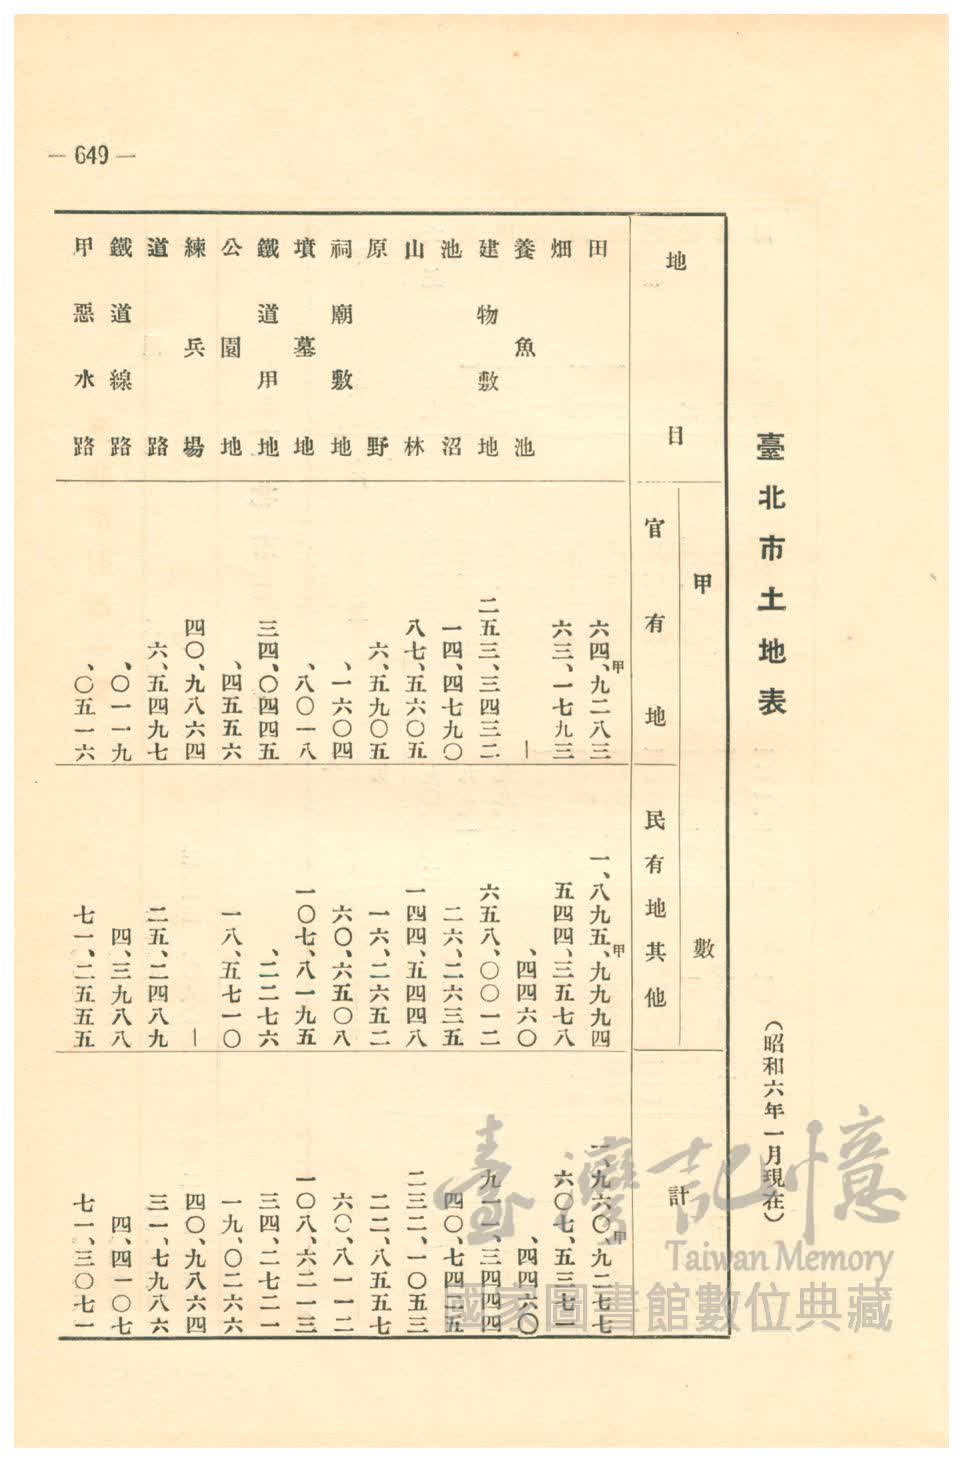 — 649 —
臺北市土地表
（昭和六年一月現在）
地目 甲數 計
官有地 民有地其他
甲 甲 甲
田 六四、九二八三 一、八九五、九九九四 一、九六〇、九二七七
畑 六三、一七九三 五四四、三五七八 六〇七、五三七一
養魚池 — 、四四六〇 、四四六〇
建物敷地 二五三、三四三二 六五八、〇〇一二 九一一、三四四四
池沼 一四、四七九〇 二六、二六三五 四〇、七四二五
山林 八七、五六〇五 一四四、五四四八 二三二、一〇五三
原野 六、五九〇五 一六、二六五二 二二、八五五七
祠廟敷地 、一六〇四 六〇、六五〇八 六〇、八一一二
墳墓地 、八〇一八 一〇七、八一九五 一〇八、六二一三
鐵道用地 三四、〇四四五 、二二七六 三四、二七二一
公園地 、四五五六 一八、五七一〇 一九、〇二六六
練兵場 四〇、九八六四 — 四〇、九八六四
道路 六、五四九七 二五、二四八九 三一、七九八六
鐵道線路 、〇一一九 四、三九八八 四、四一〇七
甲惡水路 、〇五一六 七一、二五五五 七一、三〇七一
臺灣記憶
Taiwan Memory
國家圖書館數位典藏